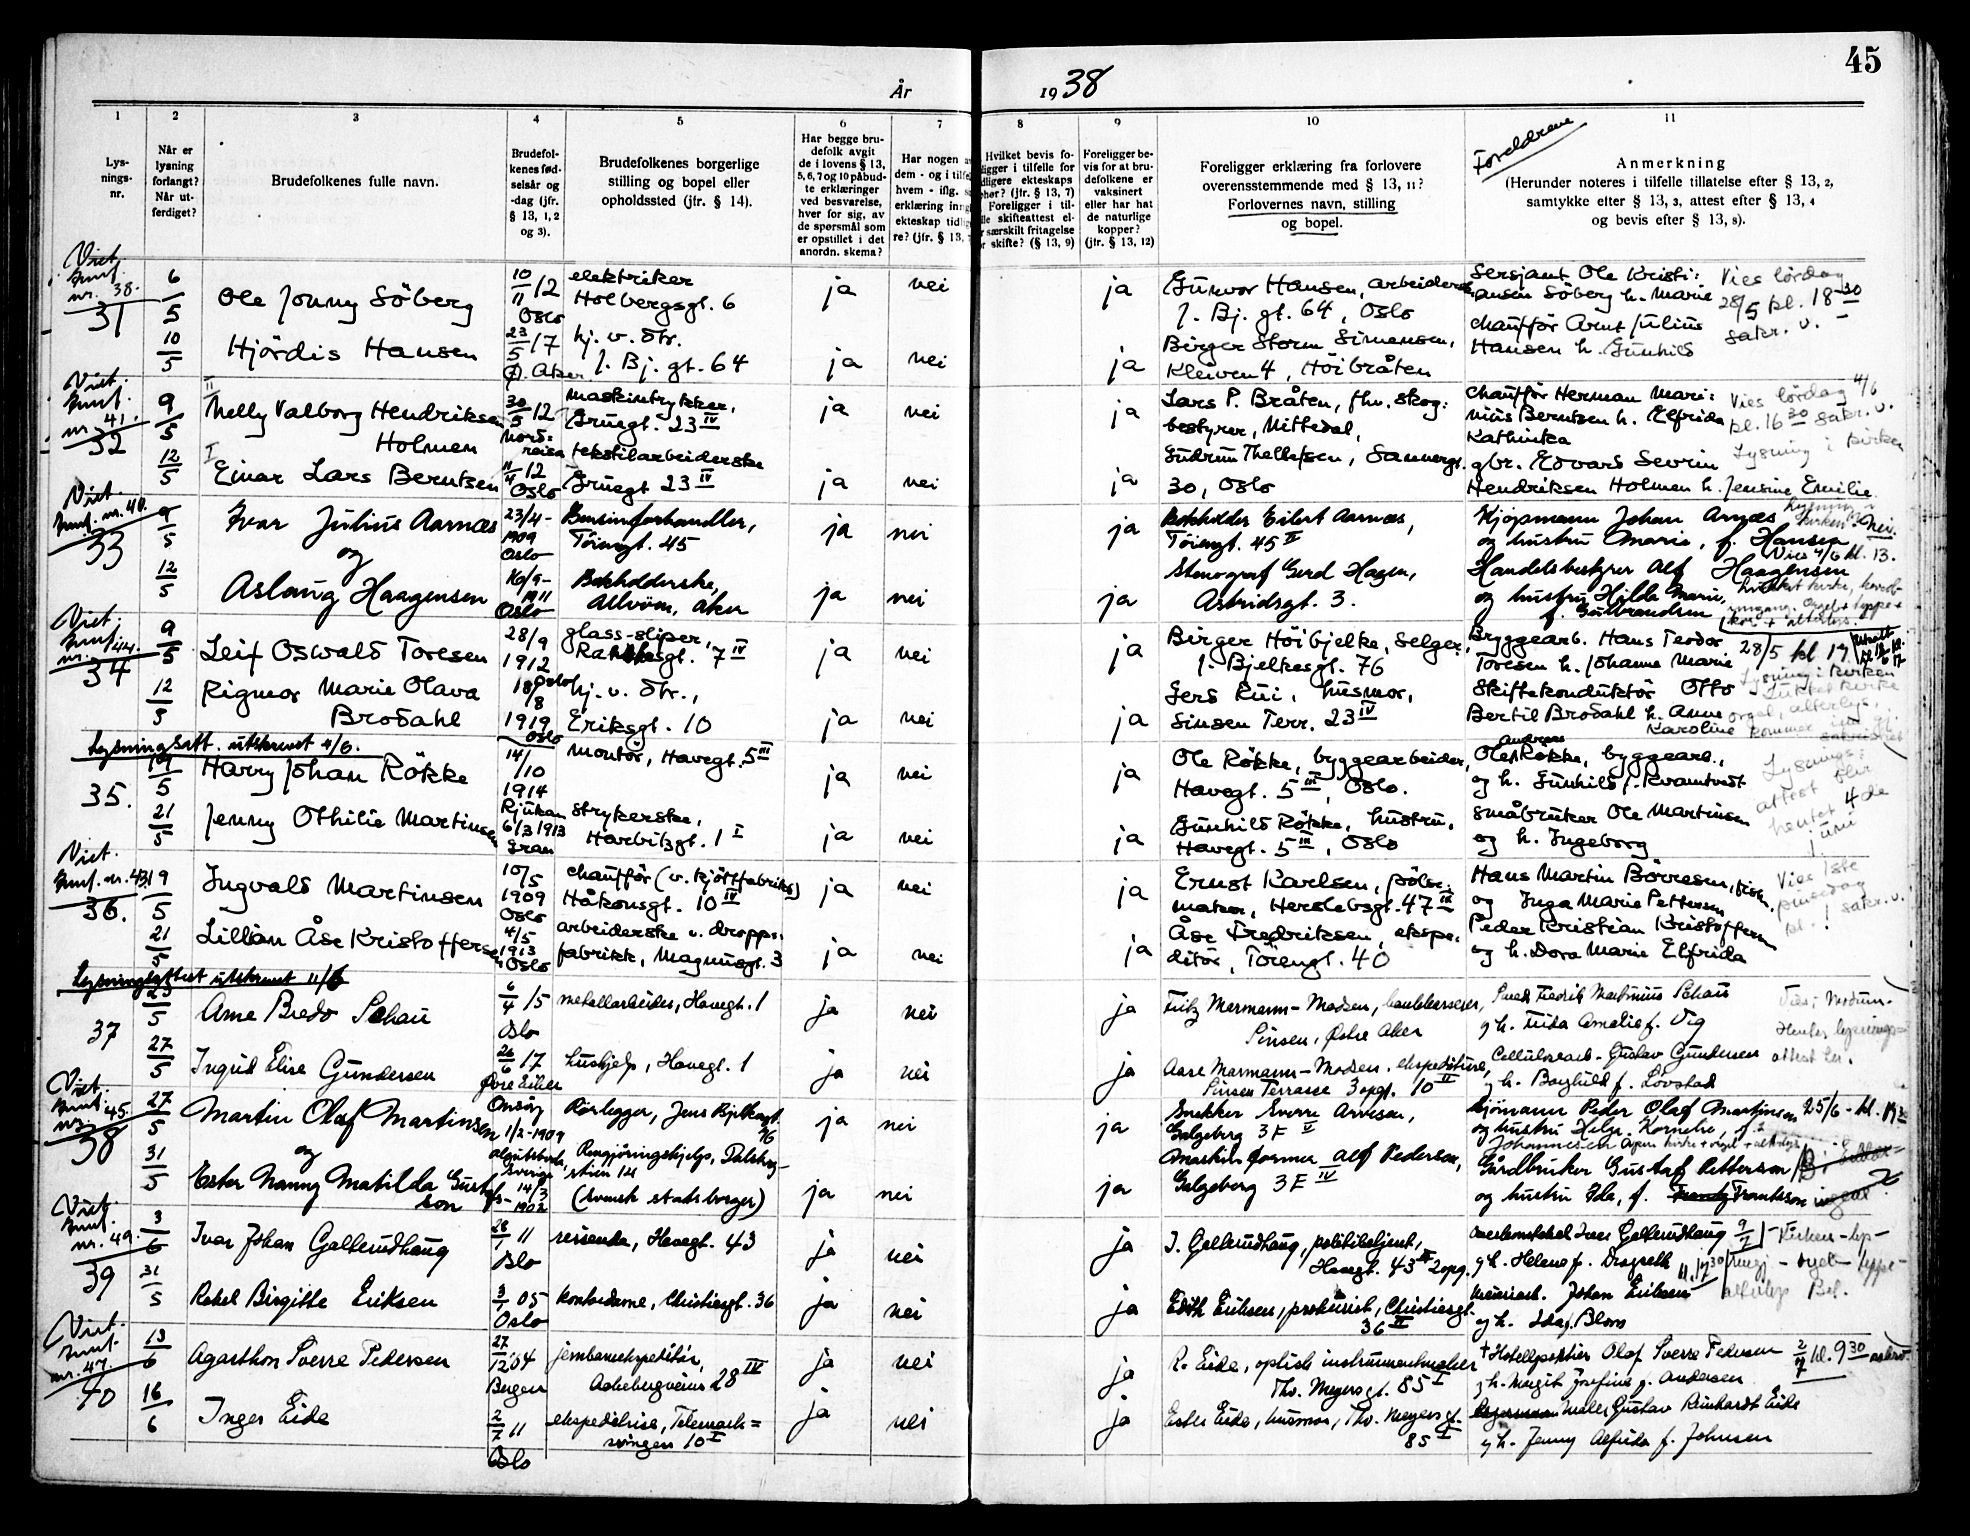 45
År 1938
1 2 3 4 5 6 7 8 9 10 11
Lys-
nings-
nr.
Når er
lysning
forlangt?
Når ut-
ferdiget?
Brudefolkenes fulle navn.
Brudefol-
kenes fød-
selsår og
-dag (jfr.
§ 13, 1, 2
og 3).
Brudefolkenes borgerlige
stilling og bopel eller
opholdssted (jfr. § 14).
Har begge bru-
defolk avgit
de i lovens § 13,
5, 6, 7 og 10 påbud-
te erklæringer
ved besvarelse,
hver for sig, av
de spørsmål som
er opstillet i det
anordn. skema?
Har nogen
dem - og i
hvem - iflg.
erklæring
ekteskap
re? (jfr. § 13,
Hvilket bevis fo-
ligger i tilfelle for
dligere ekteskaps
(jfr. § 13, 7)
Foreligger i til-
skifteattest el-
særskilt fritagelse
skifte? (§ 13, 9)
Foreligger be-
vis for at bru-
defolkene er
vaksinert
eller har hat
de naturlige
kopper?
(jfr. § 13, 12)
Foreligger erklæring fra forlovere
overensstemmende med § 13, 11?
Forlovernes navn, stilling
og bopel.
Foreldrene
Anmerkning
(Herunder noteres i tilfelle tillatelse efter § 13, 2,
samtykke efter § 13, 3, attest efter § 13, 4
og bevis efter § 13, 8).
Viet.
nr. 38.
31
6/5
Ole Jonny Söberg
10/11 12
Oslo
elektriker
Holbergsgt. 6
ja nei ja
Gunvor Hansen,
J. Bj. gt. 64, Oslo
Sersjant Ole Kristi:
ansen Söberg h. Marie
Vies lördag
28/5 kl. 18 30
sakr. v.
10/5
Hjördis Hansen
23/5 17
Ø. Aker
hj. v. dtr.
J. Bj. gt. 64
ja nei ja
Birger Storm Simensen,
Kleiven 4, Höibråten
chaufför Arnt Julius
Hansen h. Gunhild
Viet.
nr. 41.
32
9/5
II
Nelly Valborg Hendriksen
Holmen
30/5 12
Nord:
reisa
maskintrykker,
Gruegt. 23 IV
ja nei ja
Lars P. Bråten, fhv. skog:
bestyrer, Nittedal,
chaufför Herman Mari:
nius Berntsen h. Elfrida
Kathinka
Vies lördag 4/6
kl. 16 30 sakr. v.
Lysning i kirken
12/5
I
Einar Lars Berntsen
11/4 12
Oslo
tekstilarbeiderske
Gruegt 23 IV
ja nei ja
Gudrun Thellefsen, Sannergt.
30, Oslo
gbr. Edvard Sevrin
Hendriksen Holmen h. Jensine Emilie.
Viet.
nr. 40.
33
9/5
Ivar Julius Aarnæs
og
23/4-
1909
Oslo
Bensinforhandler,
Töiengt. 45
ja nei ja
Bokholder Eilert Aarnæs,
Töiengt. 45 II
Kjøpmann Johan Arnæs
og hustru Marie, f. Hansen
kirken? Nei.
Vies 4/6 kl. 13.
12/5
Aslaug Haagensen
1911
Oslo
Bokholderske,
ja nei ja
Stenograf Gerd Hagen,
Astridsgt. 3.
Handelsbestyrer Alf Haagensen
og hustru Hilda Marie,
f. Gulbrandsen
Viet.
nr. 44.
34
9/5
Leif Oswald Toresen
28/9
1912
Oslo
glass-sliper,
7 IV
ja nei ja
Birger Höibjelke, Selger,
J. Bjelkesgt. 76
Bryggearb. Hans Teodor
Toresen h. Johanne Marie
28/5 kl 17.
Lysning i kirken
12/5
Rigmor Marie Olava
Brodahl
18/8
1919
Oslo
hj. v. dtr.,
Eriksgt. 10
ja nei ja
Gerd Lui, husmor,
Sinsen Terr. 23 IV
Skiftekonduktör Otto
Bertil Brodahl h. Anne
Karoline
Lysningsatt. utskrevet 4/6.
35.
19/5
Harry Johan Rökke
14/10
1914
Rjukan
montör, Havegt. 5 III
ja nei ja
Ole Rökke, byggearbeider,
Havegt. 5 III, Oslo.
Ole Andreas Rökke, byggearb.,
og h. Gunhild f. Kvamtvedt
Lysnings:
attest blir
hentet 4de
juni
21/5
Jenny Othilie Martinsen
6/3 1913
Gran
strykerske,
Harbitzgt. 1 I
ja nei ja
Gunhild Rökke, hustru,
Havegt. 5 III, Oslo
småbruker Ole Martinsen
og h. Ingeborg
Viet.
nr. 43.
36.
19/5
Ingvald Martinsen
10/5
1909
Oslo
chaufför (v. kjöttfabrikk)
Håkonsgt. 10 IV
ja nei ja
Ernst Karlsen, pölse:
maker, Herslebsgt. 47 III
Hans Martin Börresen, fisk.
og Inga Marie Pettersen
Vies 1ste
pinsedag
kl. ! sakr. v.
21/5
Lillian Åse Kristoffersen
4/5
1913
Oslo
arbeiderske v. dropps:
fabrikk, Magnusgt. 3
ja nei ja
Åse Fredriksen, ekspe:
ditör, Töiengt. 40
Peder Kristian Kristoffersen
og h. Dora Marie Elfrida
Lysningsattest utskrevet 11/6
37
23/5
Arne Bredo Schau
6/4 15
Oslo
metallarbeider, Havegt. 1
ja nei ja
Fritz Mermann-Madsen,
Sinsen, Østre Aker
Smed Fredrik Magnus Schau
g h. Frida Amalie f. Vig
Vies i Modum.
Henter lysnings=
attest her.
27/5
Ingrid Elise Gundersen
26/6 17
Øvre Eiker
hushjelp, Havegt. 1
ja nei ja
Aase Marmann-Madsen, ekspeditrise,
Sinsen Terrasse 3 opg. 10 II
Cellulosearb. Gustav Gundersen
g h. Borghild f. Lövstad
Viet.
nr. 45.
38
27/5
Martin Olaf Martinsen
og
Onsöy
1/2-1909
Rörlegger, Jens Bjelkesgt.
76
ja nei ja
Snekker Sverre Arnesen,
Galgeberg 3 F II
Sjömann Peder Olaf Martinsen
og hustru Helga Kornelie, f.
Johannesen
25/6 - kl. 19 30
31/5
Ester Nanny Matilda Gustaf
son
Älgutsboda,
Sverige
14/3
-1902
Rengjöringshjelp, Dalsberg-
stien
(svensk statsborger)
ja nei ja
Maskinformer Alf Pedersen,
Galgeberg 3 F IV
Gårdbruker Gustaf Petterson
og hustru Ida, f. Frantsson
Viet.
nr. 49.
39
3/6
Ivar Johan Gallerudhaug
26/1 11
Oslo
reisende, Havegt. 43
ja nei ja
I. Gallerudhaug, politibetjent,
Havegt. 43 III 2 opg.
overkonstabel Iver Gallerudhaug
g h. Helene f. Dragseth
9/7
kl. 17 30
31/5
Rakel Birgitte Eriksen
3/1 05
Oslo
kontordame, Christiesgt. 36
ja nei ja
Edith Eriksen, prokurist, Christiesgt.
36 II
Johan Eriksen
g h. Ida f. Blom
Viet.
nr. 47.
40
13/6
Agarthon Sverre Pedersen
27/12 04
Bergen
jernbaneekspeditör,
Askebergveien 28 IV
ja nei ja
R. Eide, optisk instrumentmaker
Thv. Meyersgt. 85 I
† Hotellportier Olaf Sverre Pedersen
g h. Margit Josefine f. Andersen
2/7 kl. 9 30
16/6
Inger Eide
2/7 11
Oslo
ekspeditrise, Telemark=
svingen 10 I
ja nei ja
Ester Eide, husmor, Thv. Meyersgt.
85 I
Maler Gustav Reinhardt Eide
g h. Jenny Alfrida f. Johnsen